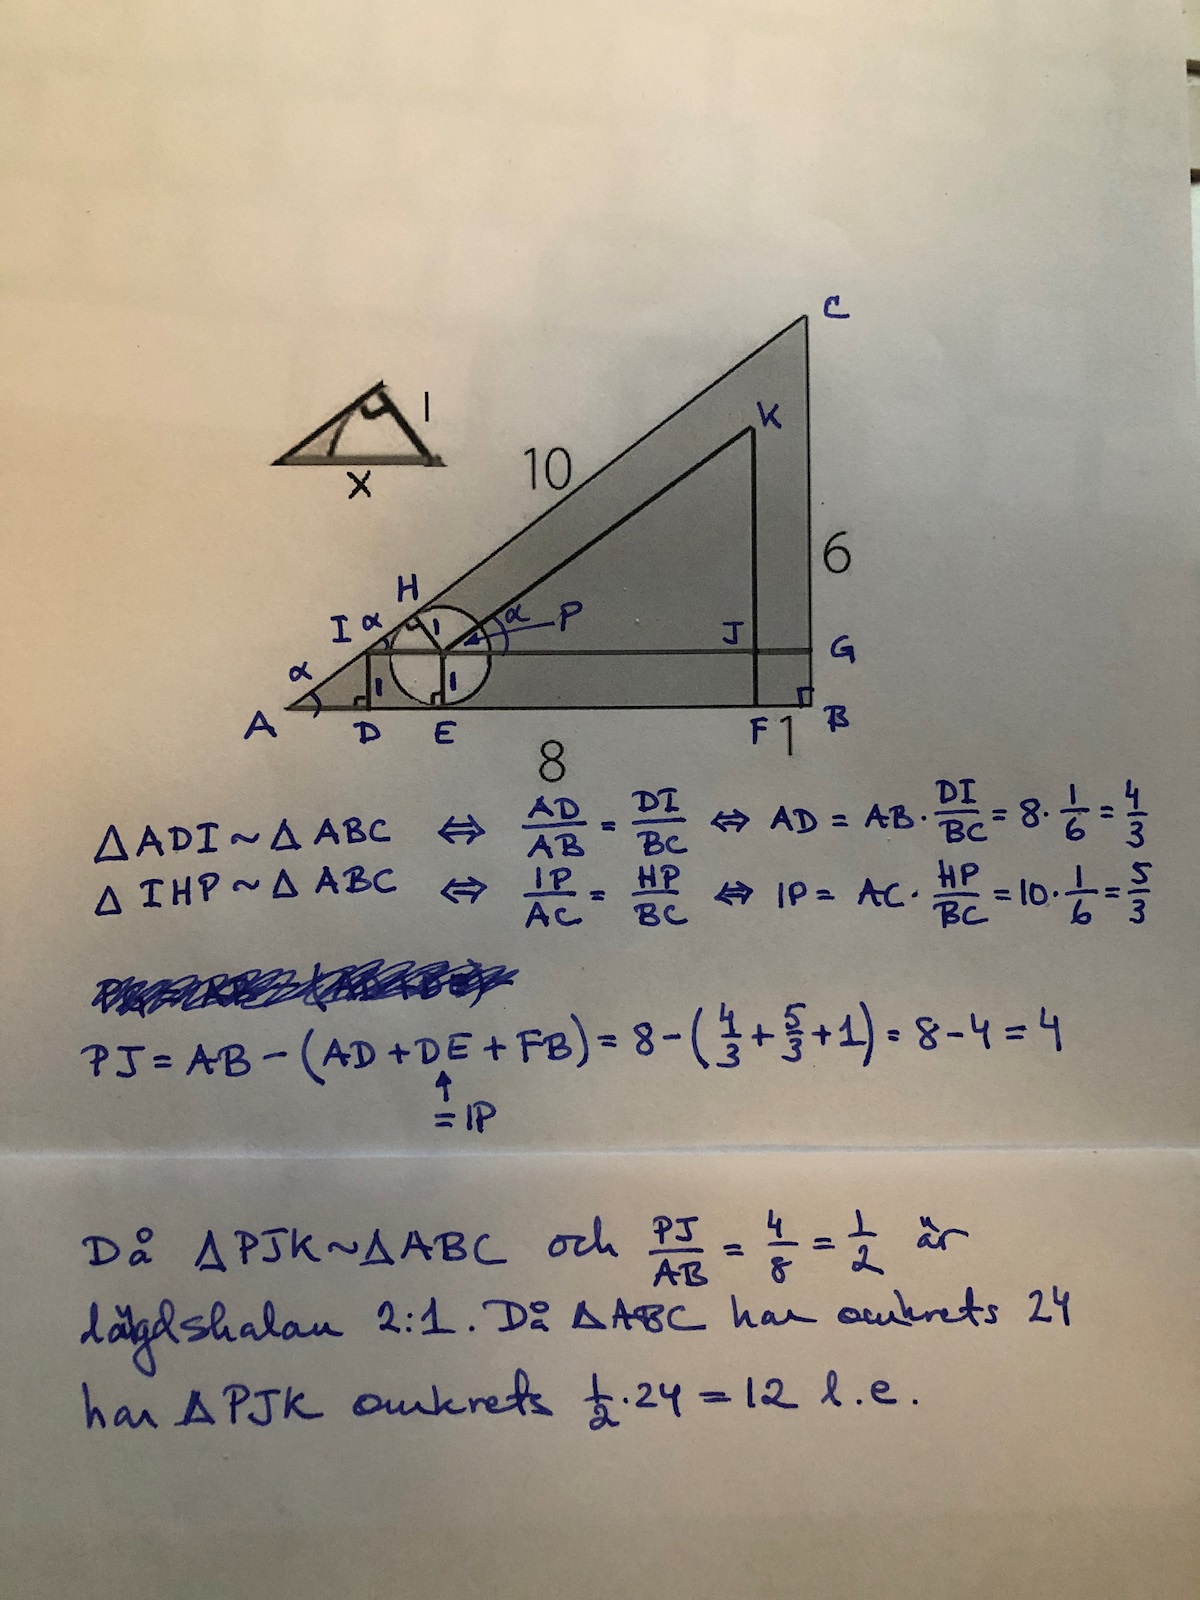 C
K
1
x
10
H
6
I α 1 α P J G
α 1 1
A D E F 1 B
8
△ADI ~ △ABC ⇔ AD/AB = DI/BC ⇔ AD = AB · DI/BC = 8 · 1/6 = 4/3
△IHP ~ △ABC ⇔ IP/AC = HP/BC ⇔ IP = AC · HP/BC = 10 · 1/6 = 5/3
PJ = AB - (AD + DE + FB) = 8 - (4/3 + 5/3 + 1) = 8 - 4 = 4
↑
= IP
Då △PJK ~ △ABC och PJ/AB = 4/8 = 1/2 är
2:1. Då △ABC har omkrets 24
har △PJK omkrets 1/2 · 24 = 12 l.e.